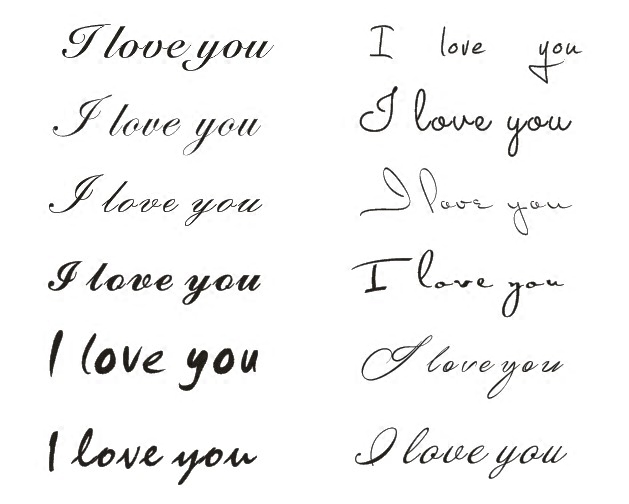 I love you
I love you
I love you
I love you
I love you
I love you
I love you
I love you
I love you
I love you
I love you
I love you